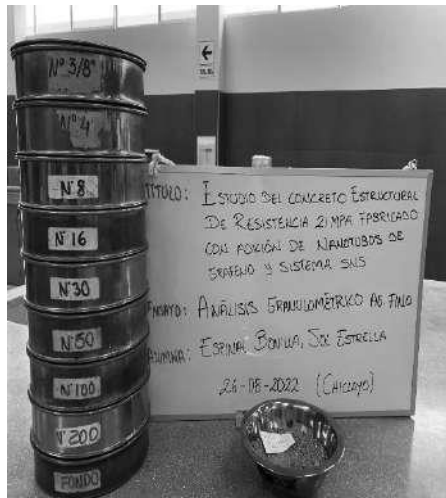 N° 3/8"
N° 4
N°8
N°16
N°30
N°50
N°100
N°200
FONDO
TITULO: ESTUDIO DEL CONCRETO ESTRUCTURAL
DE RESISTENCIA 21MPA FABRICADO
CON ADICIÓN DE NANOTUBOS DE
GRAFENO Y SISTEMA SNS
ENSAYO: ANÁLISIS GRANULOMÉTRICO AG. FINO
ALUMNA: ESPINAL BONILLA, SOL ESTRELLA
26-08-2022 (CHICLAYO)